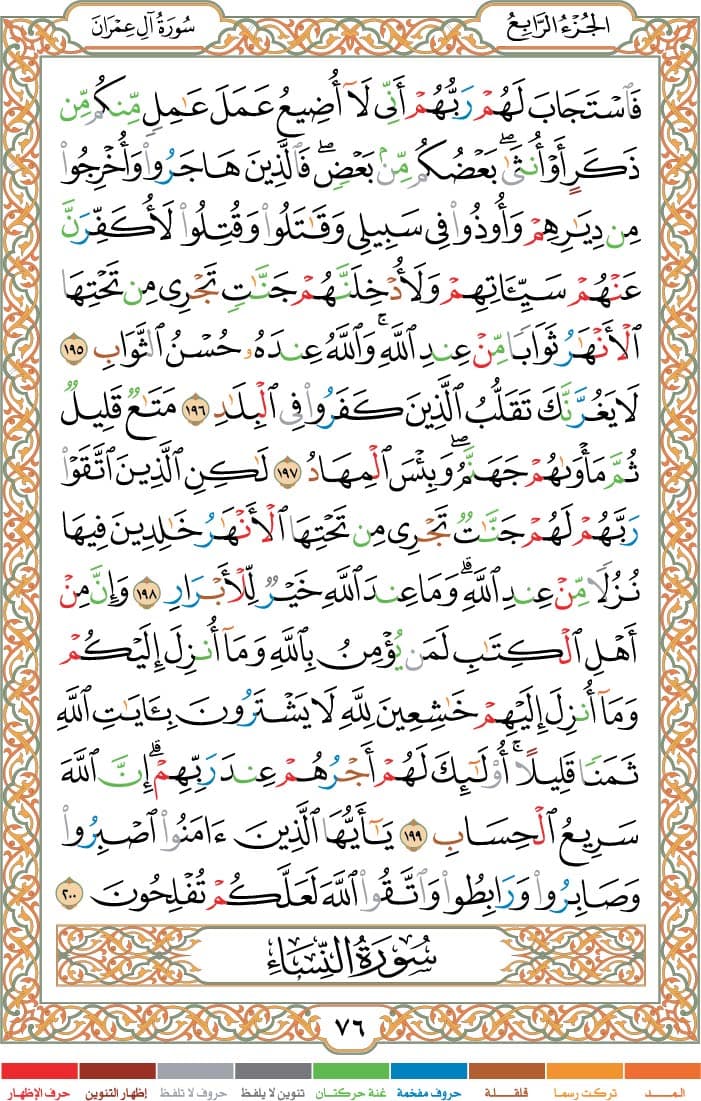 الجُزْءُ الرَّابِعُ
سُورَةُ آلِ عِمْرَانَ
فَٱسْتَجَابَ لَهُمْ رَبُّهُمْ أَنِّى لَآ أُضِيعُ عَمَلَ عَٰمِلٍ مِّنكُم مِّن
ذَكَرٍ أَوْ أُنثَىٰ ۖ بَعْضُكُم مِّنۢ بَعْضٍ ۖ فَٱلَّذِينَ هَاجَرُوا۟ وَأُخْرِجُوا۟
مِن دِيَٰرِهِمْ وَأُوذُوا۟ فِى سَبِيلِى وَقَٰتَلُوا۟ وَقُتِلُوا۟ لَأُكَفِّرَنَّ
عَنْهُمْ سَيِّـَٔاتِهِمْ وَلَأُدْخِلَنَّهُمْ جَنَّٰتٍ تَجْرِى مِن تَحْتِهَا
ٱلْأَنْهَٰرُ ثَوَابًا مِّنْ عِندِ ٱللَّهِ ۗ وَٱللَّهُ عِندَهُۥ حُسْنُ ٱلثَّوَابِ ١٩٥
لَا يَغُرَّنَّكَ تَقَلُّبُ ٱلَّذِينَ كَفَرُوا۟ فِى ٱلْبِلَٰدِ ١٩٦ مَتَٰعٌ قَلِيلٌ
ثُمَّ مَأْوَىٰهُمْ جَهَنَّمُ ۖ وَبِئْسَ ٱلْمِهَادُ ١٩٧ لَٰكِنِ ٱلَّذِينَ ٱتَّقَوْا۟
رَبَّهُمْ لَهُمْ جَنَّٰتٌ تَجْرِى مِن تَحْتِهَا ٱلْأَنْهَٰرُ خَٰلِدِينَ فِيهَا
نُزُلًا مِّنْ عِندِ ٱللَّهِ ۗ وَمَا عِندَ ٱللَّهِ خَيْرٌ لِّلْأَبْرَارِ ١٩٨ وَإِنَّ مِنْ
أَهْلِ ٱلْكِتَٰبِ لَمَن يُؤْمِنُ بِٱللَّهِ وَمَآ أُنزِلَ إِلَيْكُمْ
وَمَآ أُنزِلَ إِلَيْهِمْ خَٰشِعِينَ لِلَّهِ لَا يَشْتَرُونَ بِـَٔايَٰتِ ٱللَّهِ
ثَمَنًا قَلِيلًا ۗ أُو۟لَٰٓئِكَ لَهُمْ أَجْرُهُمْ عِندَ رَبِّهِمْ ۗ إِنَّ ٱللَّهَ
سَرِيعُ ٱلْحِسَابِ ١٩٩ يَٰٓأَيُّهَا ٱلَّذِينَ ءَامَنُوا۟ ٱصْبِرُوا۟
وَصَابِرُوا۟ وَرَابِطُوا۟ وَٱتَّقُوا۟ ٱللَّهَ لَعَلَّكُمْ تُفْلِحُونَ ٢٠٠
سُورَةُ النِّسَاءِ
٧٦
المـــد
تركت رسما
قلقلة
حروف مفخمة
غنة حركتان
تنوين لا يلفظ
حروف لا تلفظ
إظهار التنوين
حرف الإظهار